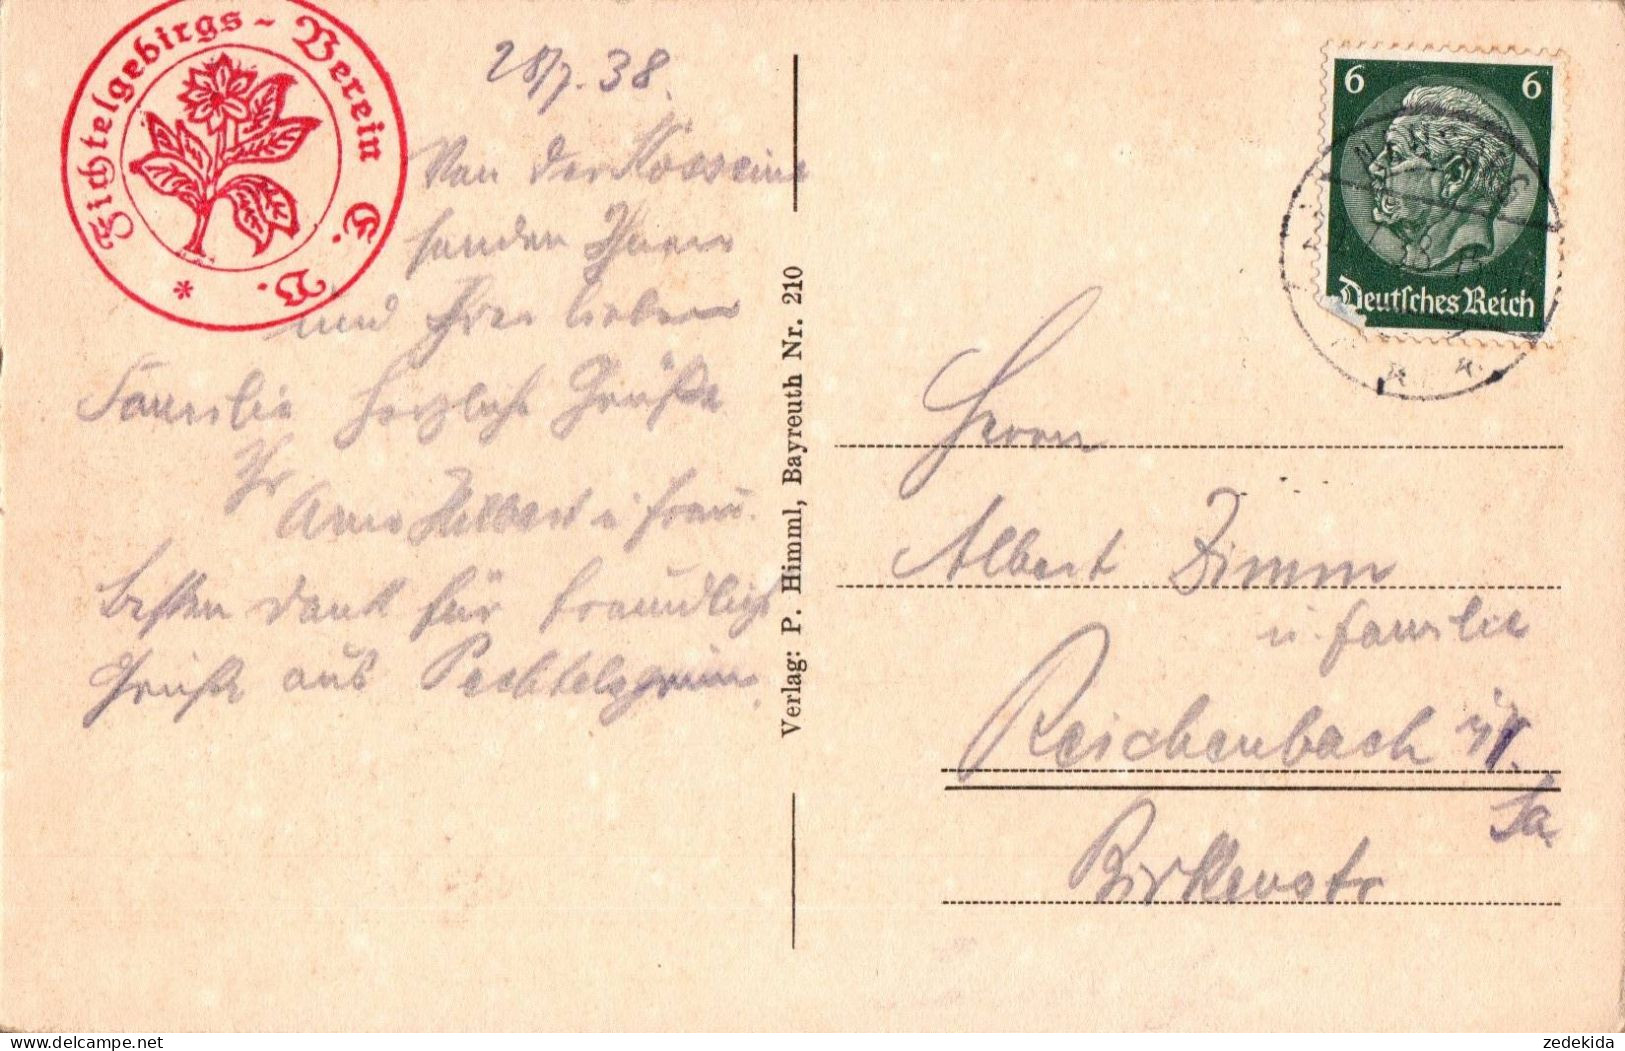 Fichtelgebirgs-Verein E. V. *
28/7. 38.
Von der Kösseine
senden Ihnen
und Ihrer lieben
Familie herzliche Grüße
Ihr
Arno u. Frau.
Besten Dank für freundliche
Grüße aus Pechtelsgrün.
Verlag: P. Himml, Bayreuth Nr. 210
6 6
Deutsches Reich
Herrn
Albert Zimm
u. Familie
Reichenbach i/V.
Sa.
Birkenstr
zedekida